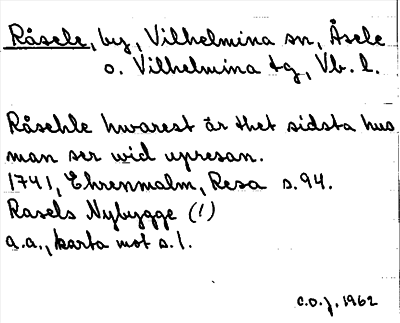 Råsele, by, Vilhelmina sn, Åsele
o. Vilhelmina tg, Vb. l.
Råsehle hwarest är thet sidsta hus
man ser wid upresan.
1741, Ehrenmalm, Resa s. 94.
Rasels Nybygge (!)
a.a., karta mot s. 1.
C.O.J. 1962